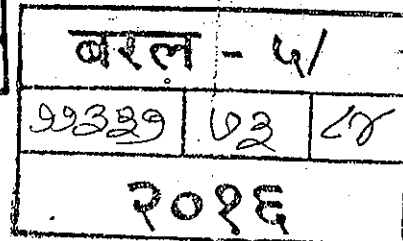 बरल - ५/
११३३१ ७३ ८४
२०१६